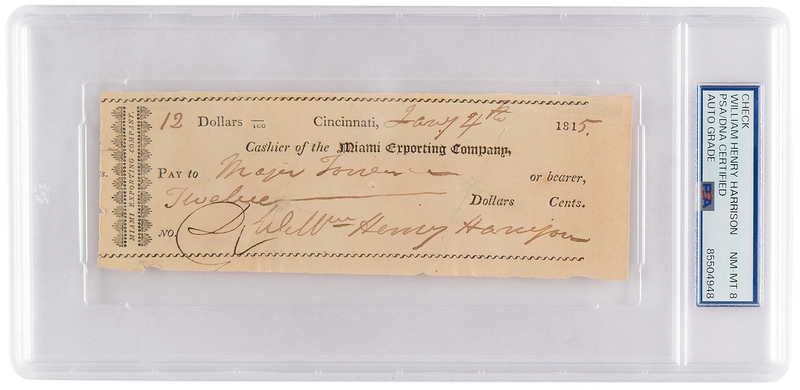 12 Dollars /100 Cincinnati, Jany 4th 1815.
Cashier of the Miami Exporting Company,
s. PAY to Major or bearer,
Twelve Dollars Cents.
NO. Wm Henry Harrison
MIAMI EXPORTING COMPANY.
CHECK
WILLIAM HENRY HARRISON NM-MT 8
PSA/DNA CERTIFIED
AUTO GRADE 85504948
PSA